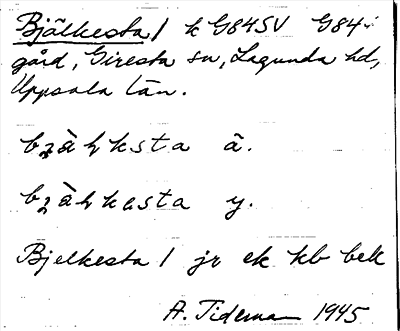 Bjälkesta / k G84SV G84
gård, Giresta sn, Lagunda hd,
Uppsala län.
bjàɫksta ä.
bjàɫkesta y.
Bjelkesta / jr ek kb bek
A. Tideman 1945